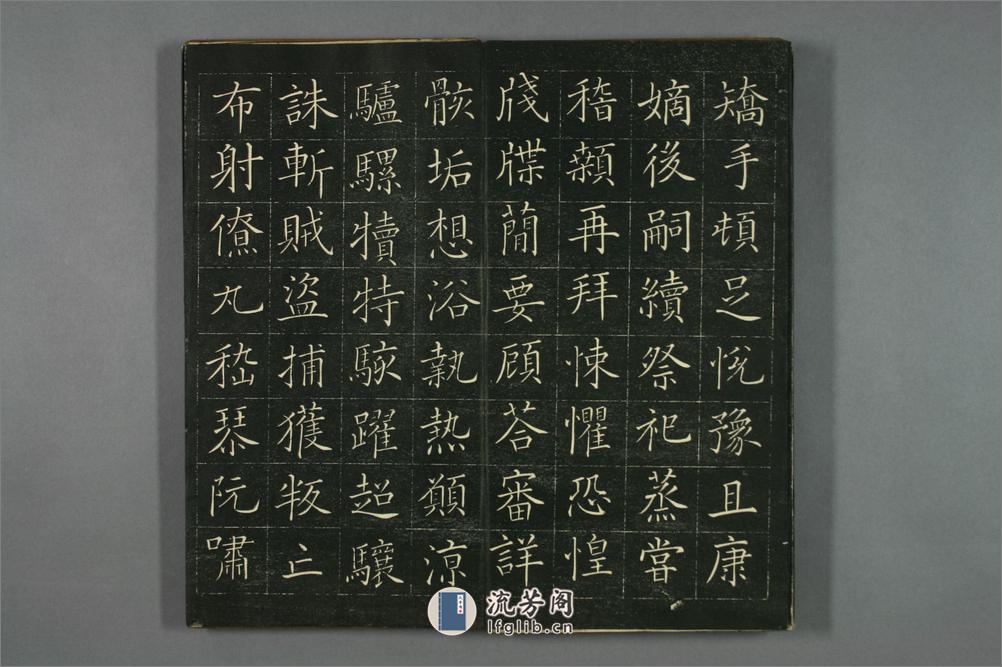 矯手頓足悅豫且康
嫡後嗣續祭祀蒸嘗
稽顙再拜悚懼恐惶
牋牒簡要顧荅審詳
骸垢想浴執熱願涼
驢騾犢特駭躍超驤
誅斬賊盜捕獲叛亡
布射僚丸嵇琴阮嘯
流芳阁
lfglib.cn